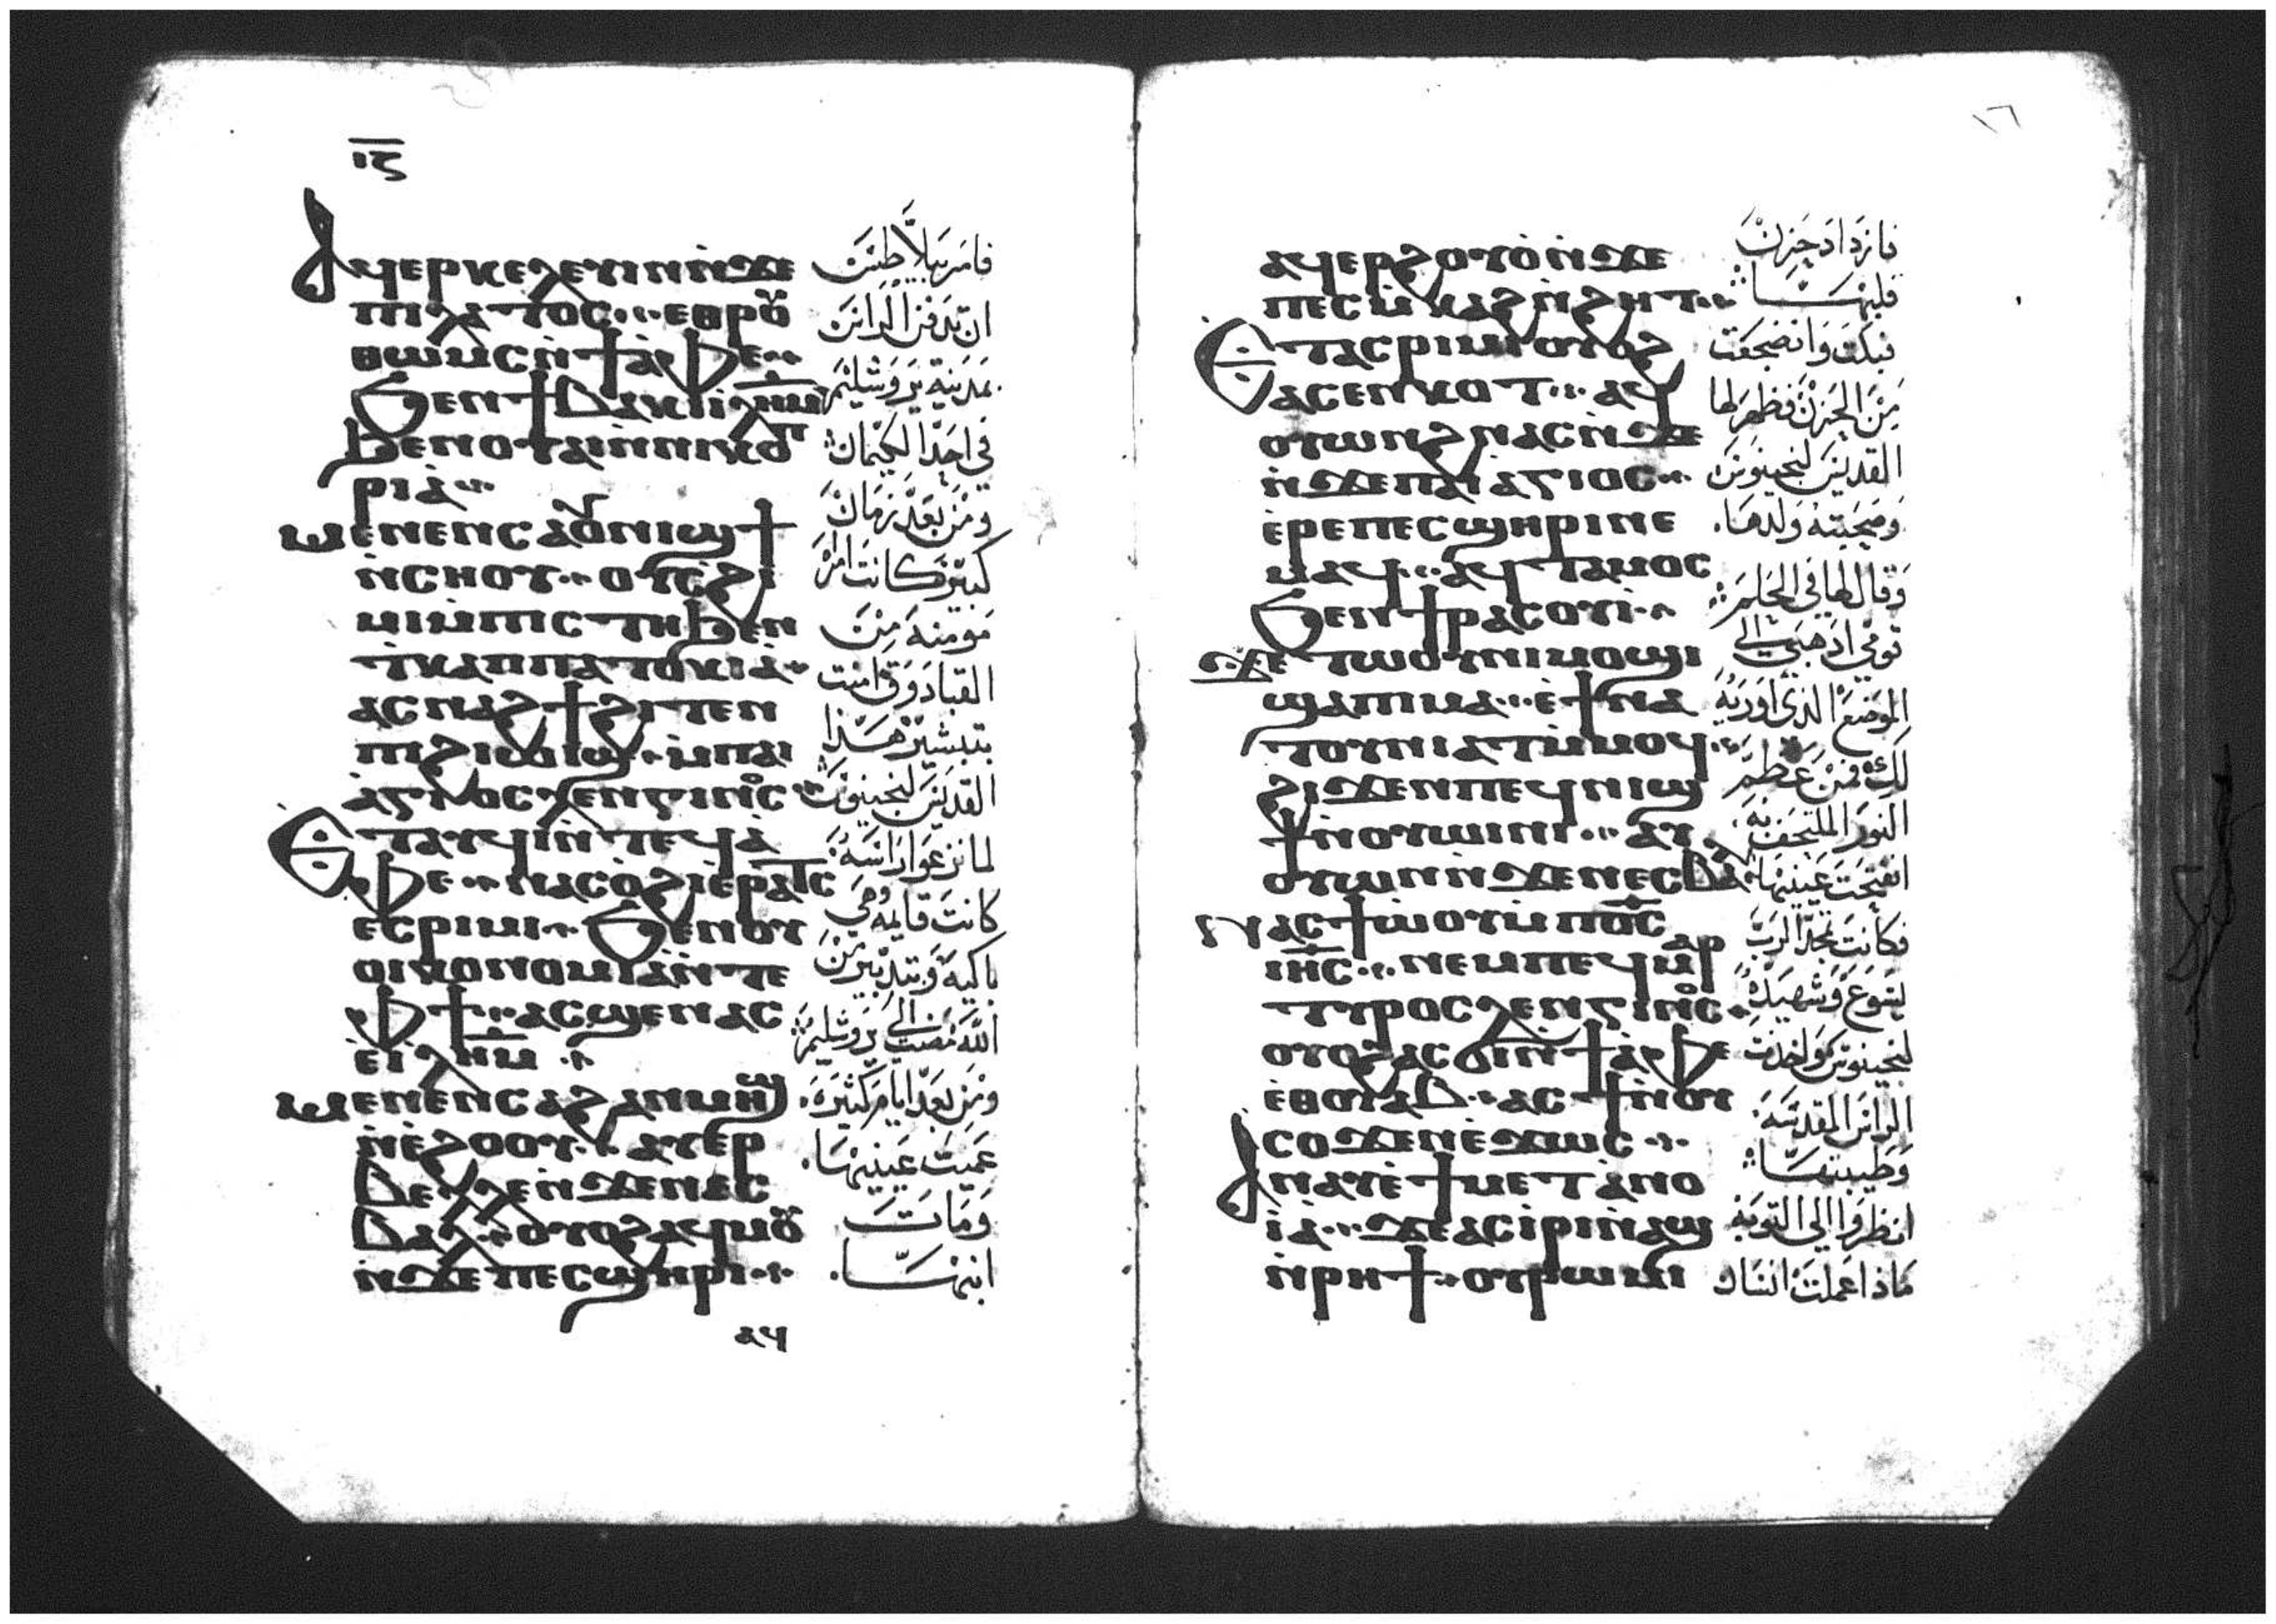 ⲓ̅ⲋ̅
Ⲁϥⲉⲣⲕⲉⲗⲉⲩⲓⲛ ⲛ̀ϫⲉ
ⲡⲓⲗⲁⲧⲟⲥ ⲉⲑⲣⲟⲩ
ⲑⲱⲙⲥ ⲛ̀ϯⲁ̀ⲫⲉ
Ϧⲉⲛ ϯⲃⲁⲕⲓ ⲓ̅ⲗ̅ⲏ̅ⲙ̅
ϧⲉⲛ ⲟⲩⲁⲓ ⲛ̀ⲛⲓⲕⲟⲡ
ⲣⲓⲁ̀
Ⲙⲉⲛⲉⲛⲥⲁ ⲟⲩⲛⲓϣϯ
ⲛ̀ⲥⲏⲟⲩ ⲟⲩⲥϩⲓ
ⲙⲓ ⲙ̀ⲡⲓⲥⲧⲏ ϧⲉⲛ
ϯⲕⲁⲡⲡⲁⲧⲟⲕⲓⲁ̀
ⲁⲥⲛⲁϩϯ ϩⲓⲧⲉⲛ
ⲡⲓϩⲓⲱⲓϣ ⲙ̀ⲡⲁⲓ
ⲁ̀ⲅⲓⲟⲥ ⲗⲉⲛⲅⲓⲛⲟⲥ
Ⲉⲧⲁⲩⲱⲗⲓ ⲛ̀ⲧⲉϥⲁ̀
ⲫⲉ ⲛⲁⲥⲟ̀ϩⲓ ⲉ̀ⲣⲁⲧⲥ
ⲉⲥⲣⲓⲙⲓ Ϧⲉⲛ ⲟⲩ
ⲟⲓⲕⲟⲛⲟⲙⲓⲁ̀ ⲛ̀ⲧⲉ
ⲫϯ ⲁⲥϣⲉⲛⲁⲥ
ⲉ̀ⲓ̅ⲗ̅ⲏ̅ⲙ̅
Ⲙⲉⲛⲉⲛⲥⲁ ϩⲁⲛⲙⲏϣ
ⲛ̀ⲉ̀ϩⲟⲟⲩ ⲁⲩⲉⲣ
ⲃⲉⲗⲗⲉ ⲛ̀ϫⲉ ⲛⲉⲥ
ⲃⲁⲗ ⲟⲩⲟϩ ⲁϥⲙⲟⲩ
ⲛ̀ϫⲉ ⲡⲉⲥϣⲏⲣⲓ
ⲁϥ
فامر بيلاطس
ان تدفن الراس
بمدينة يروشليم
في احد الكيمان
ومن بعد زمان
كبير كانت امراة
مومنة من
القبادوقي امنت
بتبشير هذا
القديس لنجينوس
لما نزعوا راسه
كانت قايمه وهي
باكية وبتدبير من
الله مضت الى يروشليم
ومن بعد ايام كثيرة
عميت عينيها
ومات
ابنها
١٦
ⲁϥⲉⲣϩⲟⲩⲟ̀ ⲛ̀ϫⲉ
ⲡⲉⲥⲙ̀ⲕⲁϩ ⲛ̀ϩⲏⲧ
Ⲉⲧⲁⲥⲣⲓⲙⲓ ⲟⲩⲟϩ
ⲁⲥⲉⲛⲕⲟⲧ ⲁϥ
ⲟⲩⲱⲛϩ ⲛⲁⲥ ⲛ̀ϫⲉ
ⲛ̀ϫⲉ ⲡⲁⲓⲁⲅⲓⲟⲥ
ⲉ̀ⲣⲉ ⲡⲉⲥϣⲏⲣⲓ ⲛⲉ
ⲙⲁϥ ⲁϥⲧⲁⲙⲟⲥ
Ϧⲉⲛ ϯⲣⲁⲥⲟⲩⲓ
ϫⲉ ⲧⲱⲟⲩⲛⲓ ⲙⲟϣⲓ
ϣⲁ ⲡⲓⲙⲁ ⲉ̀ϯⲛⲁ
ⲧⲟⲩⲛⲓⲁⲧ ⲙ̀ⲙⲟϥ
ϩⲓϫⲉⲛ ⲡⲉϥⲛⲓϣ
ϯ ⲛ̀ⲟⲩⲱⲓⲛⲓ ⲁⲩ
ⲟⲩⲱⲛ ⲛ̀ϫⲉ ⲛⲉⲥⲃⲁⲗ
Ⲛⲁⲥϯⲱ̀ⲟⲩ ⲙ̀ⲡϭⲟⲓⲥ
ⲓⲏⲥ ⲛⲉⲙ ⲡⲉϥⲙⲁⲣ
ⲧⲩⲣⲟⲥ ⲗⲉⲛⲅⲓⲛⲟⲥ
ⲟⲩⲟϩ ⲁⲥϭⲓ ⲛ̀ϯⲁ̀ⲫⲉ
ⲉ̀ⲑⲟⲩⲁⲃ ⲁⲥϯ ⲛ̀ⲟⲩ
ⲥⲟϫⲉⲛ ⲉ̀ϫⲱⲥ
Ⲁⲛⲁⲩ ⲉ̀ϯⲙⲉⲧⲁⲛⲟ
ⲓⲁ̀ ϫⲉ ⲁⲥⲓ̀ⲣⲓ ⲛ̀ⲁϣ
ⲛ̀ⲣⲏϯ ⲟⲩⲣⲱⲙⲓ
فازداد حزن
قلبها
فبكت وانضجعت
من الحزن فظهر لها
القديس لنجينوس
وصحبته ولدها
وقال لها في الحلم
قومي اذهبي الى
الموضع الذي اوريه
لك فمن عظم
النور الملتحف به
انفتحت عينيها
فكانت تمجد الرب
يسوع وشهيده
لنجينوس واخذت
الراس المقدسه
وطيبتها
انظروا الى التوبه
ماذا عملت انسان